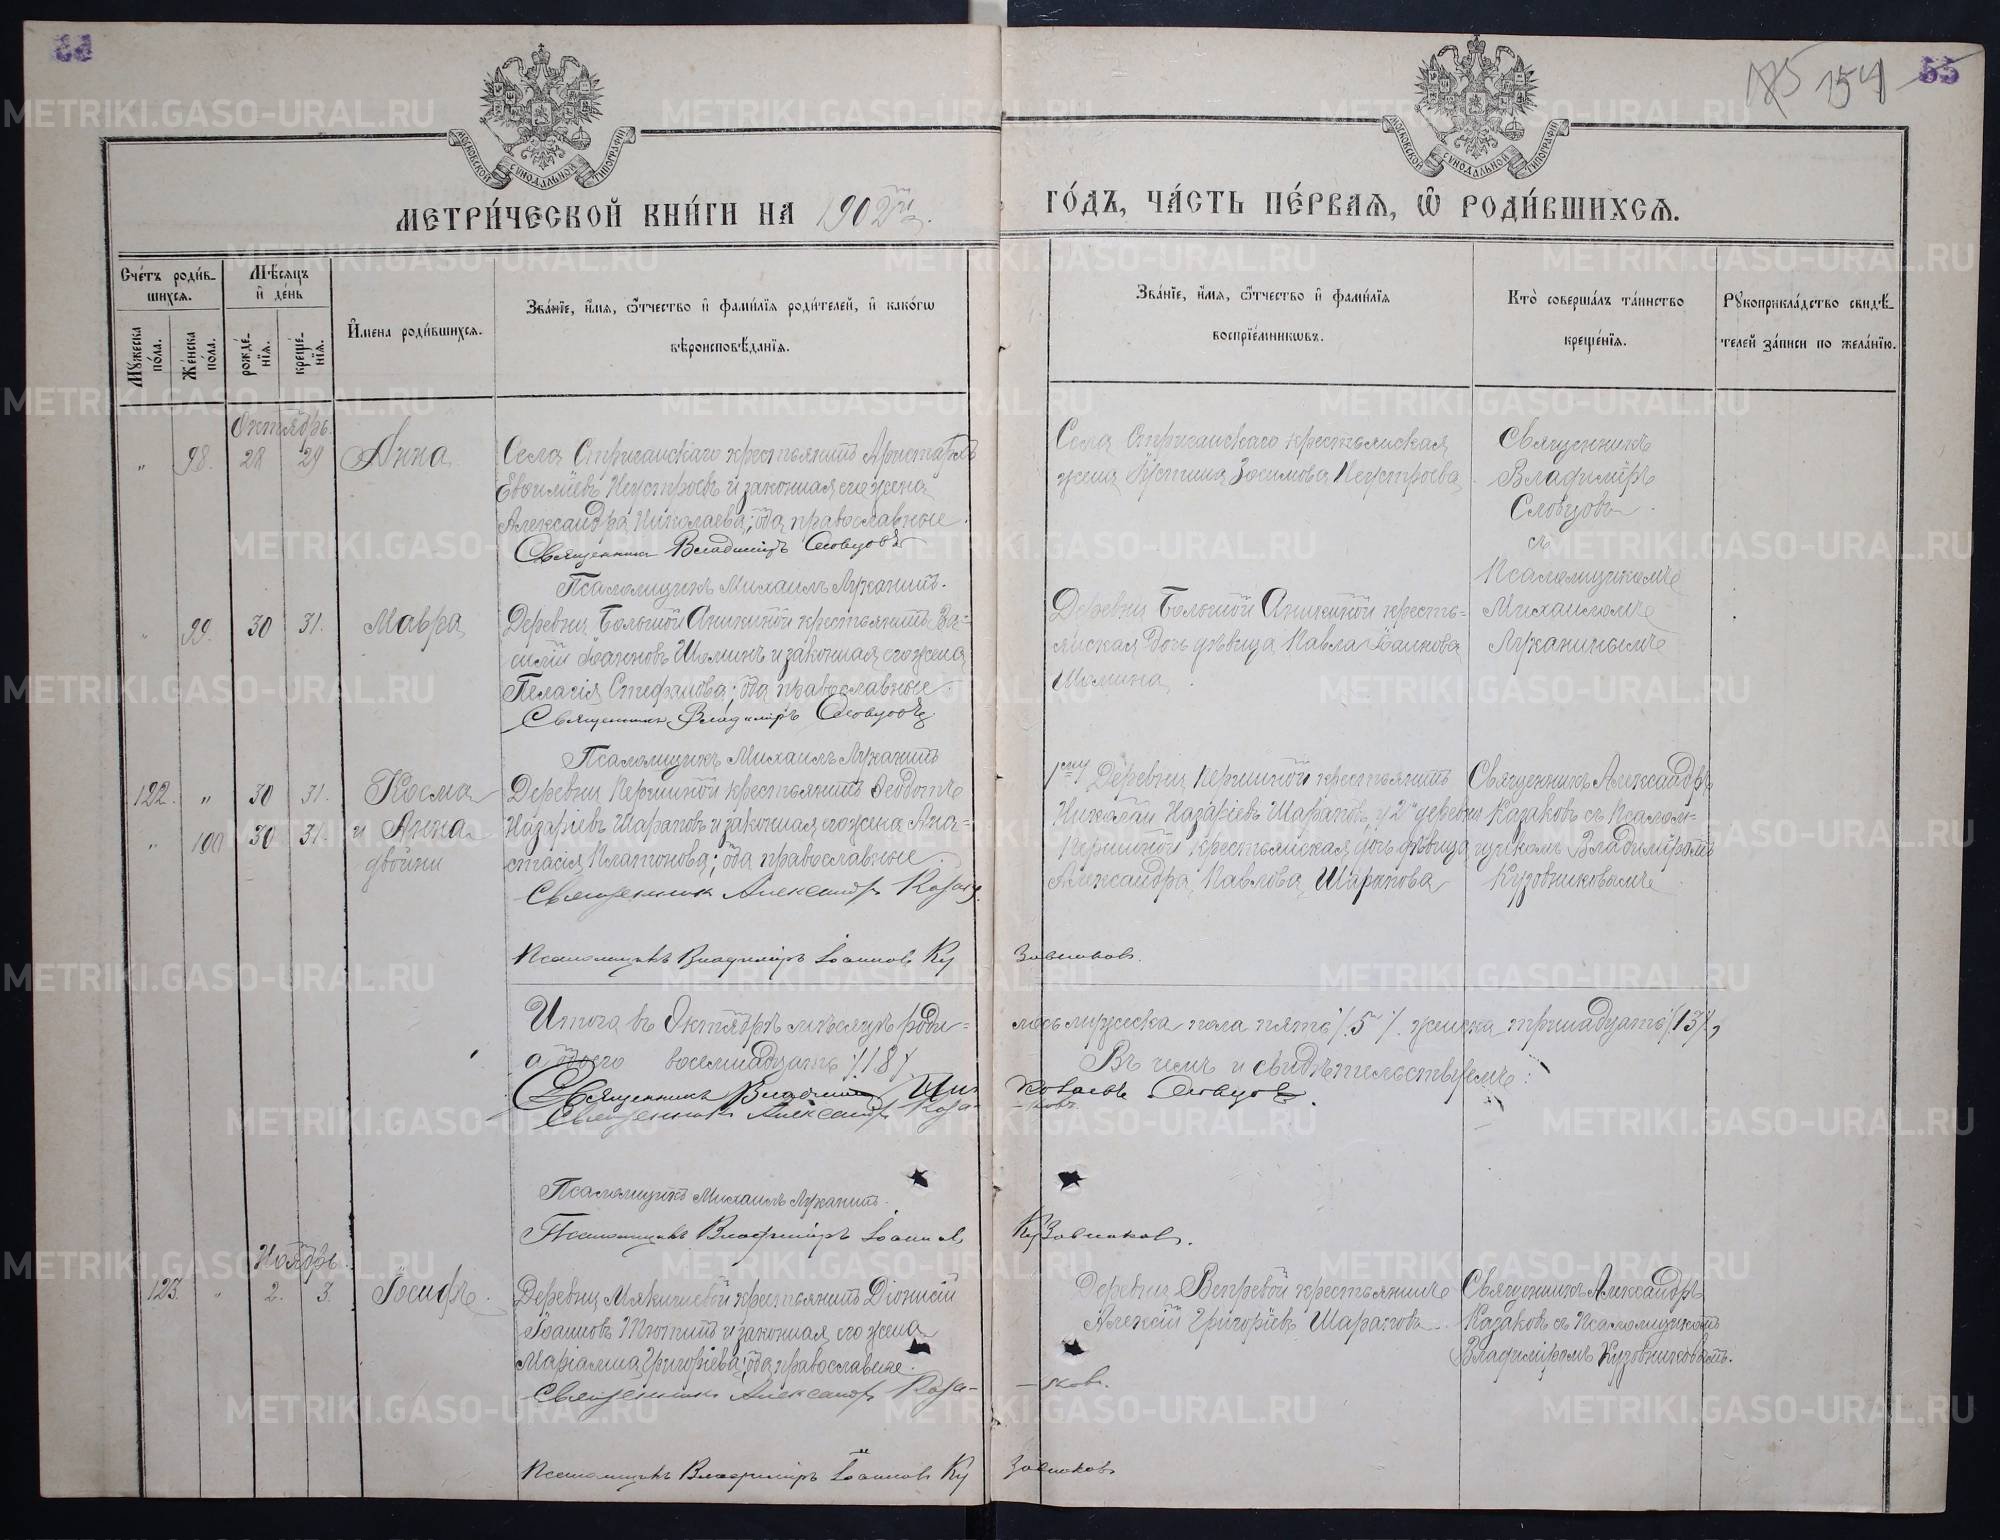 55
175 154
МОСКОВСКОЙ СУНОДАЛЬНОЙ ТИПОГРАФІИ
МОСКОВСКОЙ СУНОДАЛЬНОЙ ТИПОГРАФІИ
МЕТРИ́ЧЕСКОЙ КНИ́ГИ НА 1902й г.
ГО́ДЪ, ЧА́СТЬ ПЕ́РВАЯ, Ѡ РОДИ́ВШИХСЯ.
Счётъ роди́в-
шихся.
Мꙋжеска по́ла.
Же́нска по́ла.
Мѣ́сяцъ
и҆ де́нь
рожде́-
нїя.
креще́-
нїя.
И҆мена роди́вшихся.
Зва́нїе, и҆́мя, ѻ҆́тчество и҆ фами́лїя роди́телей, и҆ како́гѡ
вѣроисповѣ́данїя.
Зва́нїе, и҆́мя, ѻ҆́тчество и҆ фами́лїя
воспрїе́мникѡвъ.
Кто̀ соверша́лъ та́инство
креще́нїя.
Рꙋкоприкла́дство свидѣ́-
телей за́писи по жела́нїю.
Октябрь.
„ 98. 28 29 Анна
Села Стриганскаго крестьянинъ Аристархъ
Евѳиміевъ Неустроевъ и законная его жена
Александра Николаева; оба православные.
Священникъ Владиміръ Словцовъ
Псаломщикъ Михаилъ Лужанинъ.
Села Стриганскаго крестьянская
жена Іустина Зосимова Неустроева.
Священникъ
Владиміръ
Словцовъ
съ
Псаломщикомъ
Михаиломъ
Лужанинымъ
„ 99. 30 31. Мавра
Деревни Большой Аникиной крестьянинъ Ва-
силій Іоанновъ Шоминъ и законная его жена
Пелагія Стефанова; оба православные.
Священникъ Владиміръ Словцовъ
Псаломщикъ Михаилъ Лужанинъ
Деревни Большой Аникиной кресть-
янская дочь дѣвица Павла Іоаннова
Шомина.
122. „ 30 31. Косма
„ 100 30 31. и Анна
двойни
Деревни Першиной крестьянинъ Ѳеодотъ
Назаріевъ Шараповъ и законная его жена Ана-
стасія Платонова; оба православные.
Священникъ Александръ Казаков.
Псаломщикъ Владиміръ Іоанновъ Ку
зовников.
1му Деревни Першиной крестьянинъ
Николай Назаріевъ Шараповъ, у 2й деревни
Першиной крестьянская дочь дѣвица
Александра Павлова Шарапова
Священникъ Александръ
Казаковъ съ Псалом-
щикомъ Владиміромъ
Кузовниковымъ
Итого въ Октябрѣ мѣсяцѣ роди-
лось мужеска пола пять /5/. женска тринадцать /13/,
а всего восемнадцать /18/
Въ чемъ и свидѣтельствуемъ:
Священникъ Владиміръ Ни-
колаевъ Словцовъ.
Священникъ Александръ Каза-
-ковъ
Псаломщикъ Михаилъ Лужанинъ.
Псаломщикъ Владиміръ Іоаннов
Кузовников.
Ноябрь.
123. „ 2. 3. Іосифъ.
Деревни Мякишевой крестьянинъ Діонисій
Іоанновъ Тютинъ и законная его жена
Маріамна Григоріева; оба православные.
Священникъ Александръ Каза-
-ков.
Псаломщикъ Владиміръ Іоанновъ Ку
зовников
Деревни Вепревой крестьянинъ
Алексій Григоріевъ Шараповъ.
Священникъ Александръ
Казаковъ съ Псаломщикомъ
Владиміромъ Кузовниковымъ.
METRIKI.GASO-URAL.RU